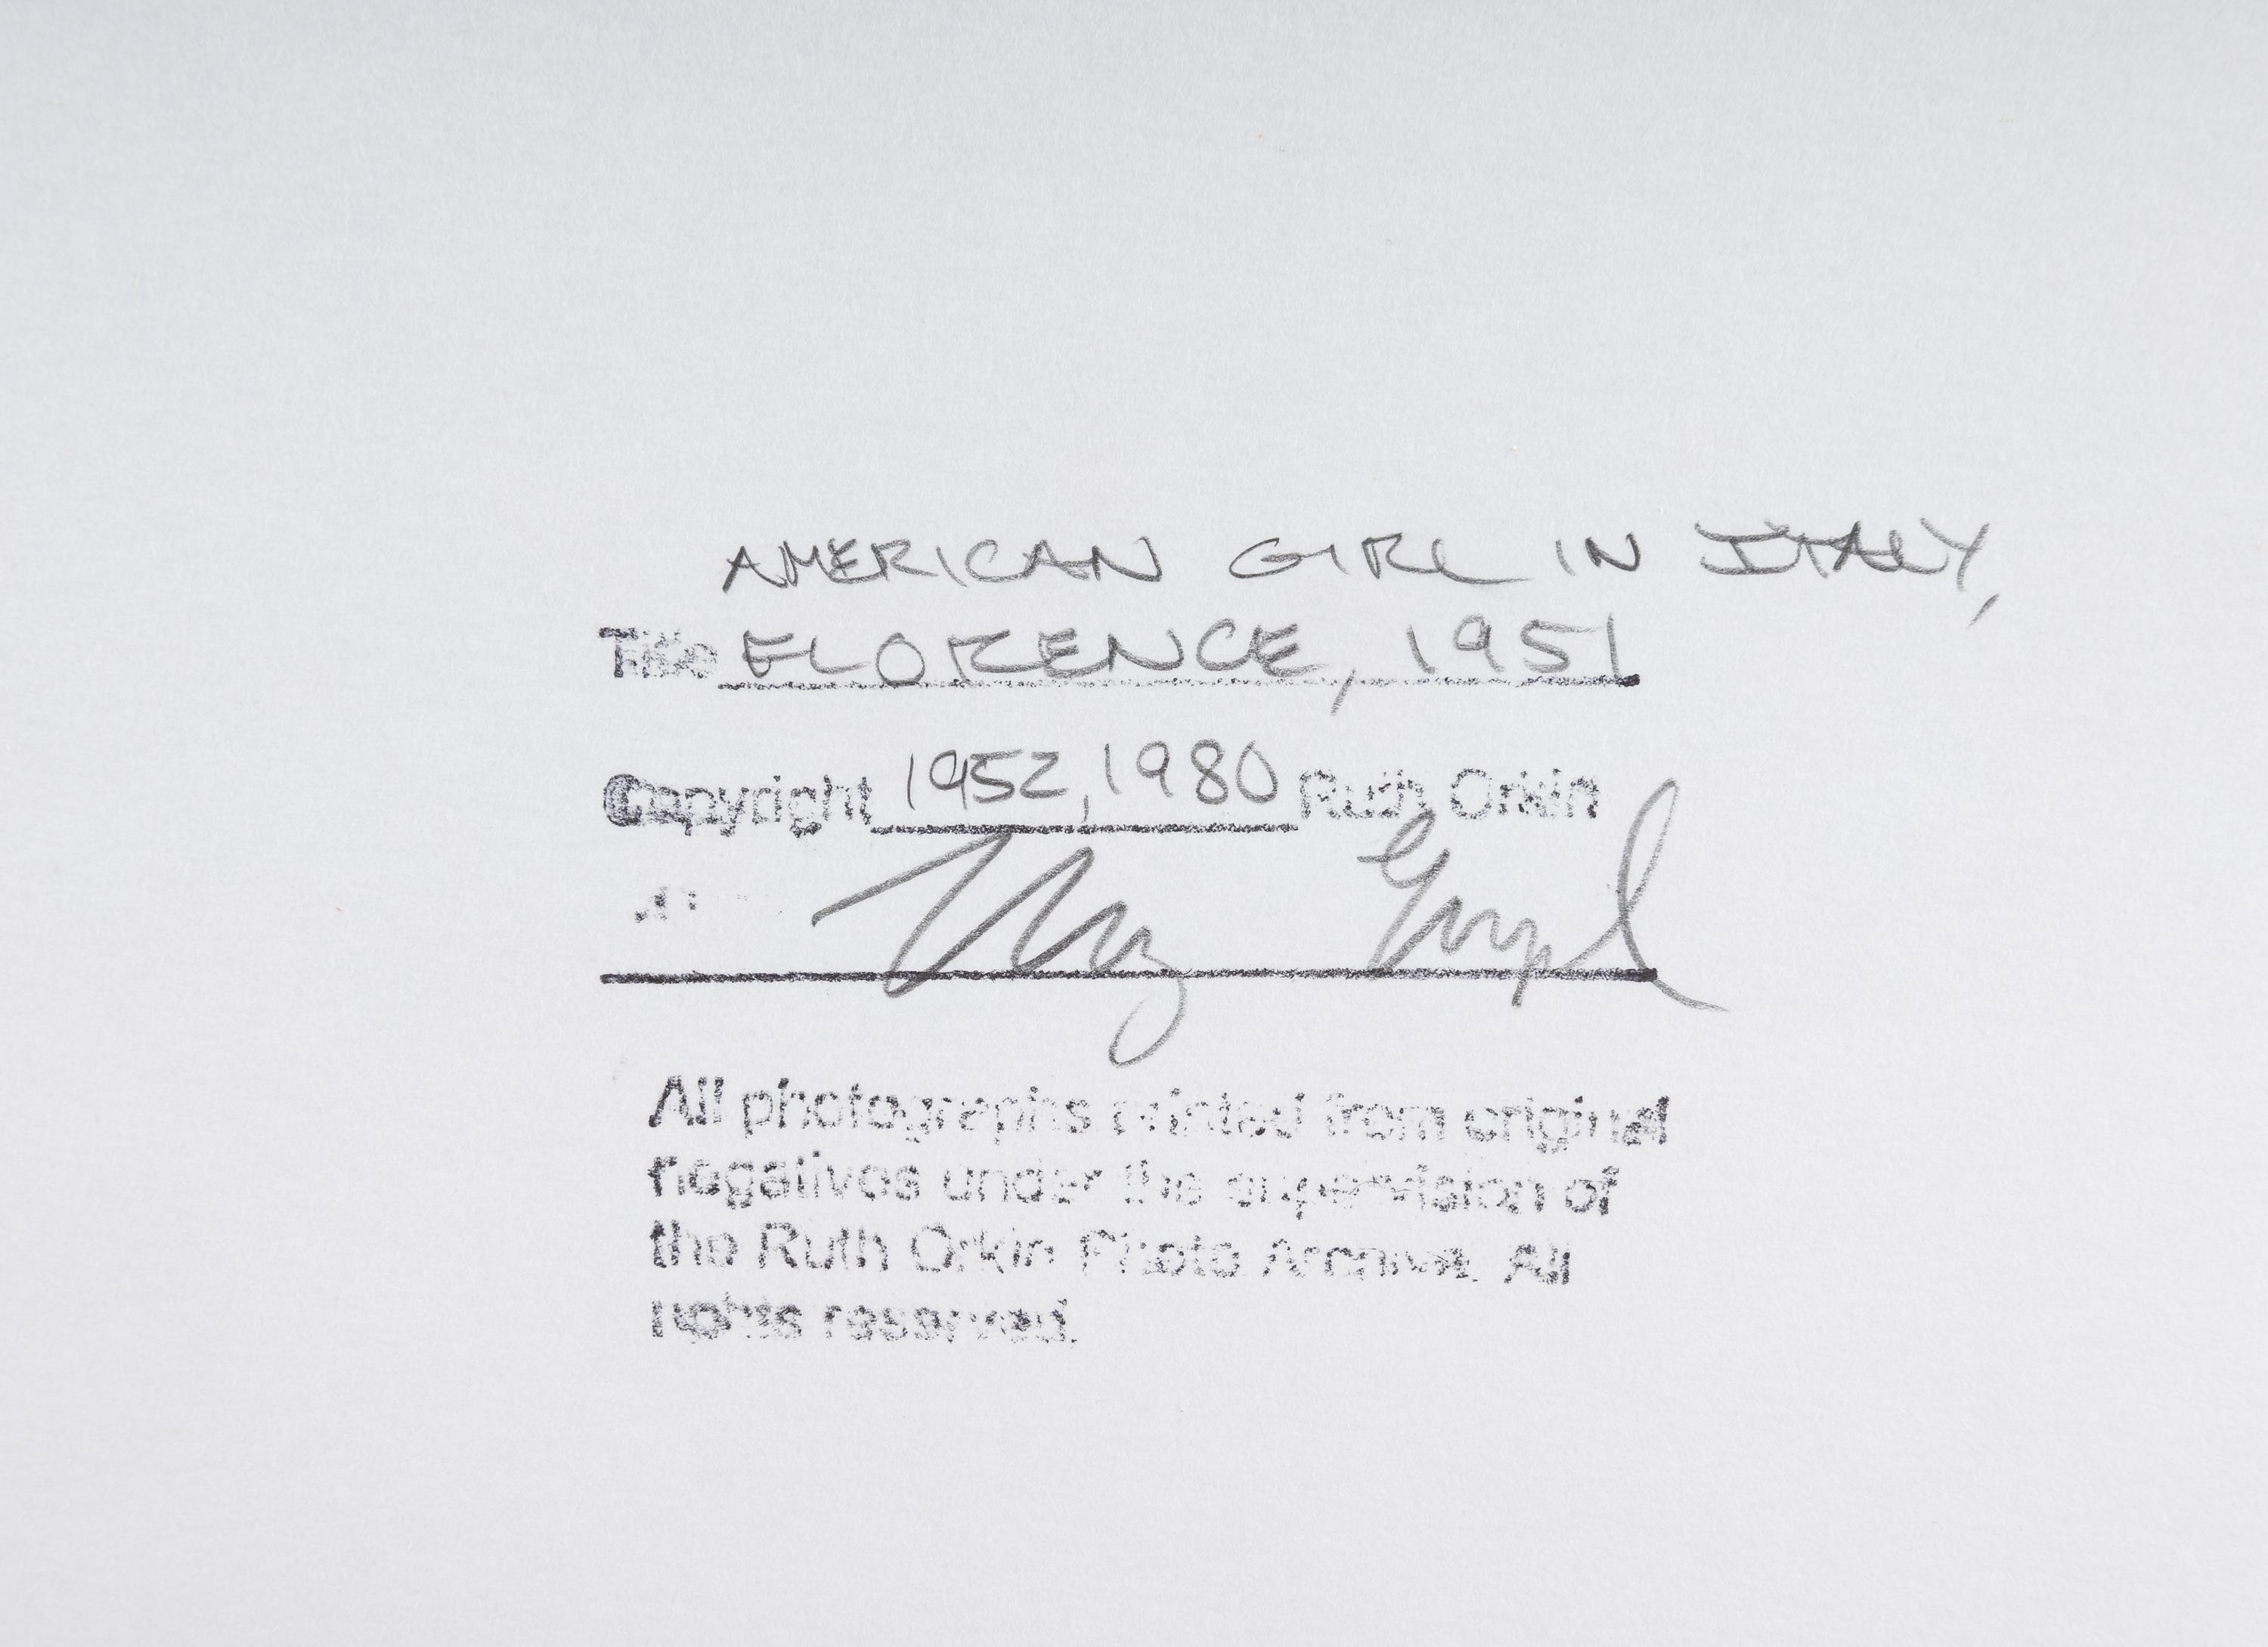 AMERICAN GIRL IN ITALY,
Title FLORENCE, 1951
Copyright 1952, 1980 Ruth Orkin
Mary Engel
All photographs printed from original
negatives under the supervision of
the Ruth Orkin Photo Archive. All
rights reserved.